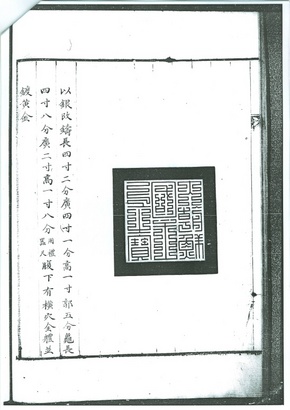 以銀改鑄長四寸二分廣四寸一分高一寸郭五分龜長
四寸八分廣二寸高一寸八分用禮器尺腹下有橫穴全體並
鍍黃金